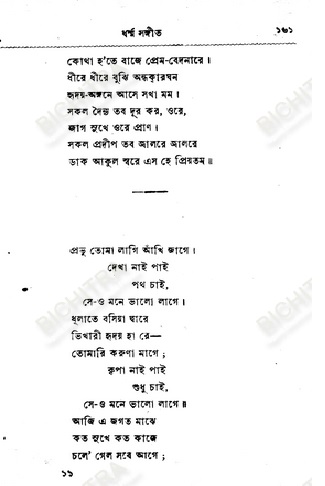 ধর্ম্ম সঙ্গীত ১৬১
কোথা হ'তে বাজে প্রেম-বেদনারে।
ধীরে ধীরে বুঝি অন্ধকারঘন
হৃদয়-অঙ্গনে আসে সখা মম।
সকল দৈন্য তব দূর কর, ওরে,
জাগ সুখে ওরে প্রাণ।
সকল প্রদীপ তব জ্বালরে জ্বালরে
ডাক আকুল স্বরে এস হে প্রিয়তম॥
প্রভু তোমা লাগি আঁখি জাগে।
দেখা নাই পাই
পথ চাই,
সে-ও মনে ভালো লাগে।
ধূলাতে বসিয়া দ্বারে
ভিখারী হৃদয় হা রে—
তোমারি করুণা মাগে;
কৃপা নাই পাই
শুধু চাই,
সে-ও মনে ভালো লাগে॥
আজি এ জগত মাঝে
কত সুখে কত কাজে
চলে' গেল সবে আগে;
১১
BICHITRA